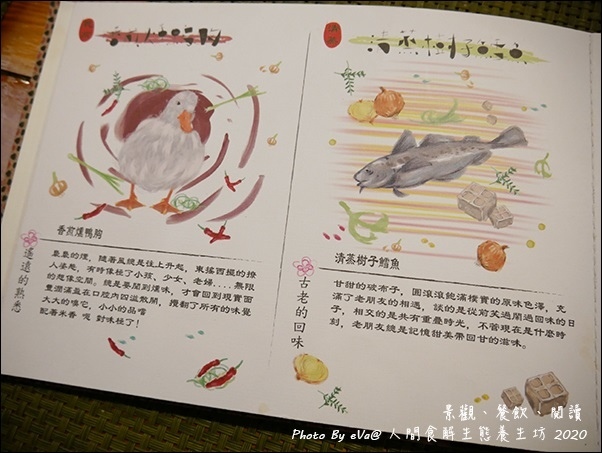 香煎燻鴨胸
遙遠的熟悉
裊裊的煙，隨著風總是往上升起，東搖西擺的撩
人姿態，有時像極了小孩、少女、老婦....無限
的想像空間。總是要聞到燻味，才會回到現實面
豐潤滿盈在口腔內四溢散開，攪翻了所有的味覺
大大的嗅它，小小的品嚐
配著米香 嗯 對味極了！
清蒸樹子鱈魚
古老的回味
甘甜的破布子，圓滾滾飽滿樸實的原味色澤，充
滿了老朋友的相遇，談的是從前笑過鬧過回味的日
子，相交的是共有重疊時光，不管現在是什麼時
刻，老朋友總是記憶甜美帶回甘的滋味。
景觀、餐飲、閱讀
Photo By eVa@ 人間食解生態養生坊 2020